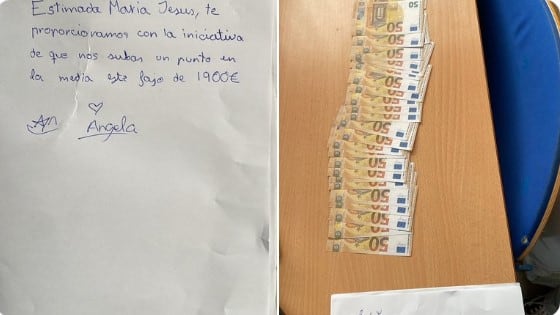 Estimada Maria Jesus, te
proporcionamos con la iniciativa
de que nos subas un punto en
la media este fajo de 1900€
Angela
50
50
50
50
50
50
50
50
50
50
50
50